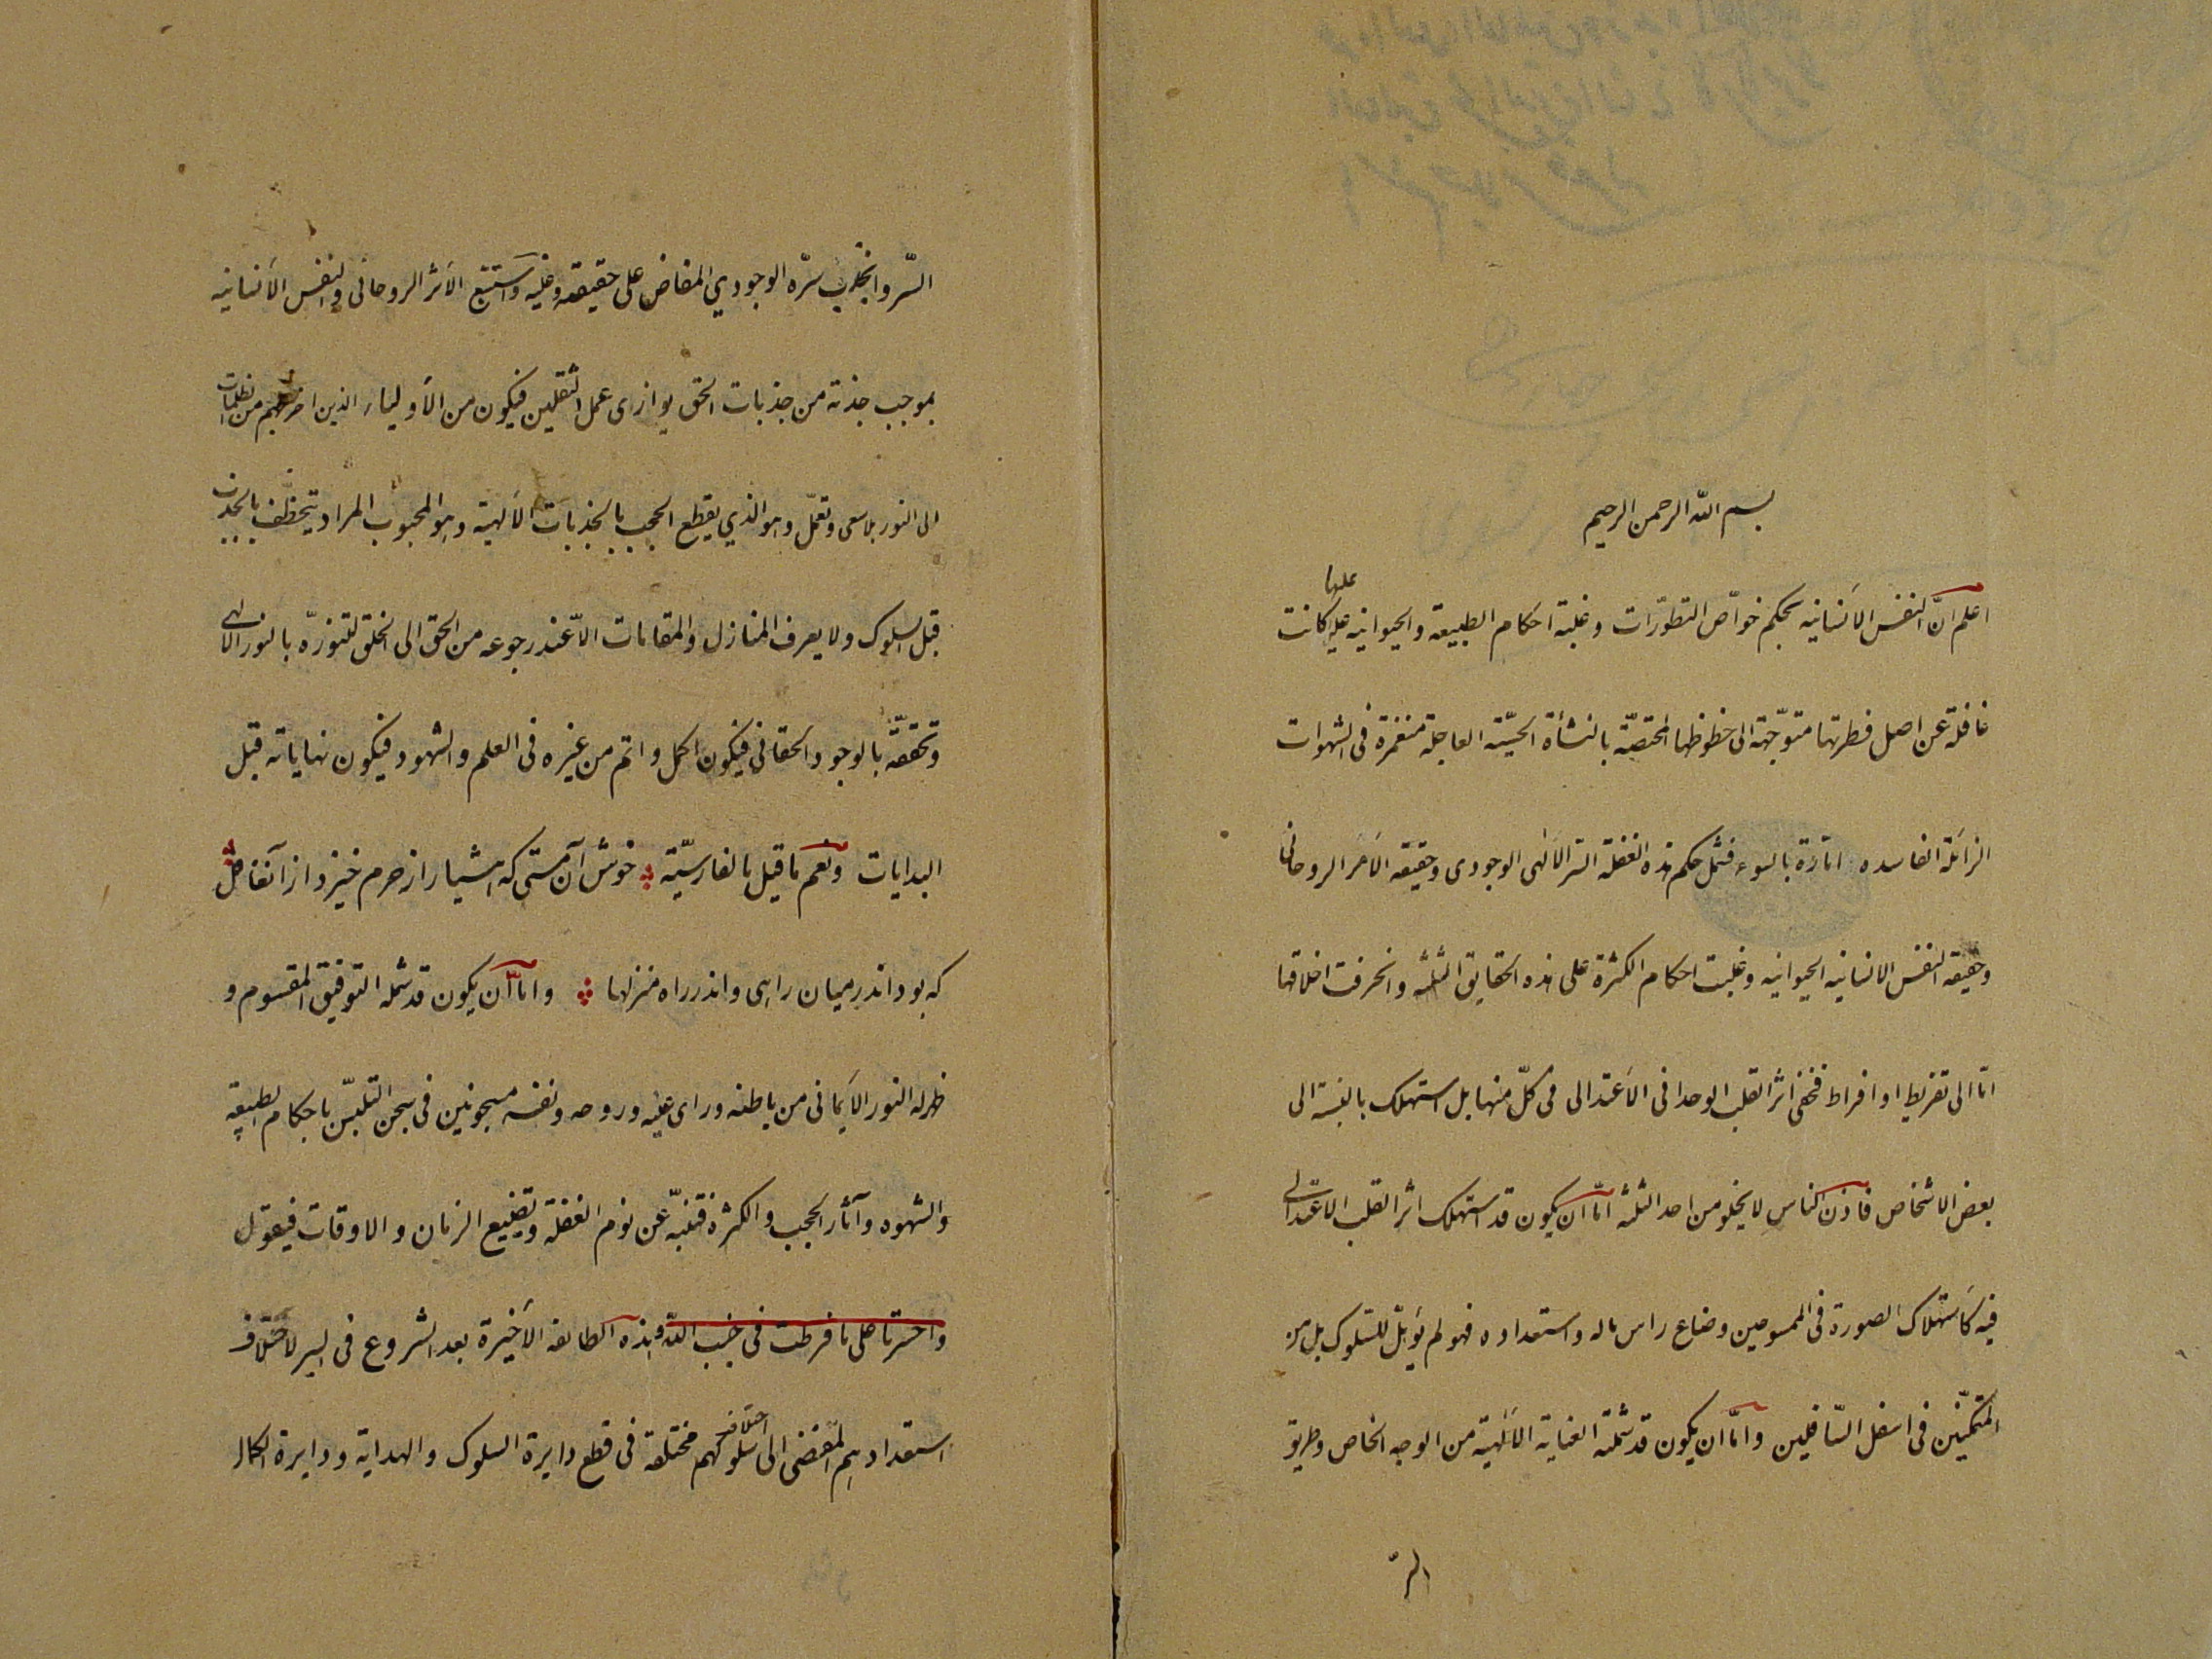 بسم الله الرحمن الرحيم
عليها
اعلم انّ النفس الأنسانيه بحكم خواصّ التطوّرات و غلبة احكام الطبيعة والحيوانيه عليه كانت
غافلة عن اصل فطرتها متوجّهة الى حظوظها المختصّة بالنشأة الحسّية العاجلة منغمرة فى الشهوات
الزائلة الفاسده امّارة بالسوء فشمل حكم هذه الغفلة السّر الألهى الوجودى وحقيقة الأمر الروحانى
وحقيقة النفس الانسانيه الحيوانيه وغلبت احكام الكثرة على هذه الحقايق الثلثه وانحرفت اخلاقها
امّا الى تفريط او افراط فخفى اثر القلب الوحدانى الأعتدالى فى كلّ منها بل استهلك بالنسبة الى
بعض الاشخاص فاذن الناس لا يخلو من احد الثلثه امّا ان يكون قد استهلك اثر القلب الاعتدالى
فيه كأستهلاك الصورة فى الممسوحين وضاع راس ماله واستعداده فهو لم يؤهّل للسلوك بل من
المتمكّنين فى اسفل السّافلين وامّا ان يكون قد شملته العناية الألهية من الوجه الخاص وطريق
السّر
السّر وانجذب سرّه الوجودي المفاض على حقيقته وخليه واستتبع الأثر الروحانى والنفس الأنسانيه
بموجب جذبة من جذبات الحق يوازى عمل الثقلين فيكون من الأولياء الذين اخرجهم من الظلمات
الى النور بلا سعى وتعمّل وهو الذي يقطع الحجب بالجذبات الألهية وهو المحبوب المراد
قبل السلوك ولا يعرف المنازل والمقامات الّا عند رجوعه من الحق الى الخلق لتنوّره بالنور الالهى
وتحقّقه بالوجود الحقانى فيكون اكمل واتم من غيره فى العلم والشهود فيكون نهاياته قبل
البدايات ونعم ما قيل بالفارسيّة خوش آن مستى كه هشيار از حرم خيزد از آنغافل
كه بود اندر ميان راهى واندر راه منزلها وامّا ان يكون قد شمله التوفيق المقسوم و
ظهر له النور الأيمانى من باطنه وراى عينه وروحه ونفسه مسجونين فى سجن التلبّس باحكام الطبيعة
والشهوه وآثار الحجب والكثرة فتنبّه عن نوم الغفلة وتضييع الزمان والاوقات فيقول
واحسرتا على ما فرطت فى جنب اللّه وهذه الطائفه الأخيرة بعد الشروع فى السير لاختلاف
استعدادهم المقضى الى اختلاف سلوكهم مختلفة فى قطع دايرة السلوك والهداية ودايرة الكمال